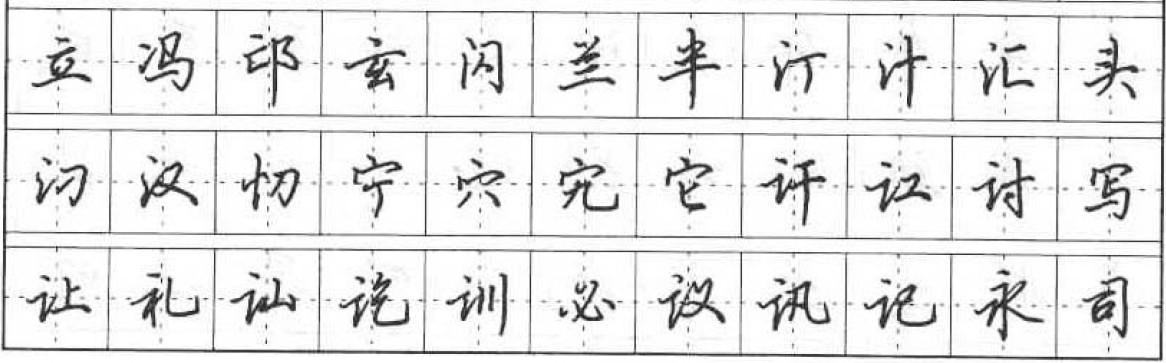 立冯邙玄闪兰半汀汁汇头
汈汉忉宁穴宄它讦讧讨写
让礼讪讫训必议讯记永司